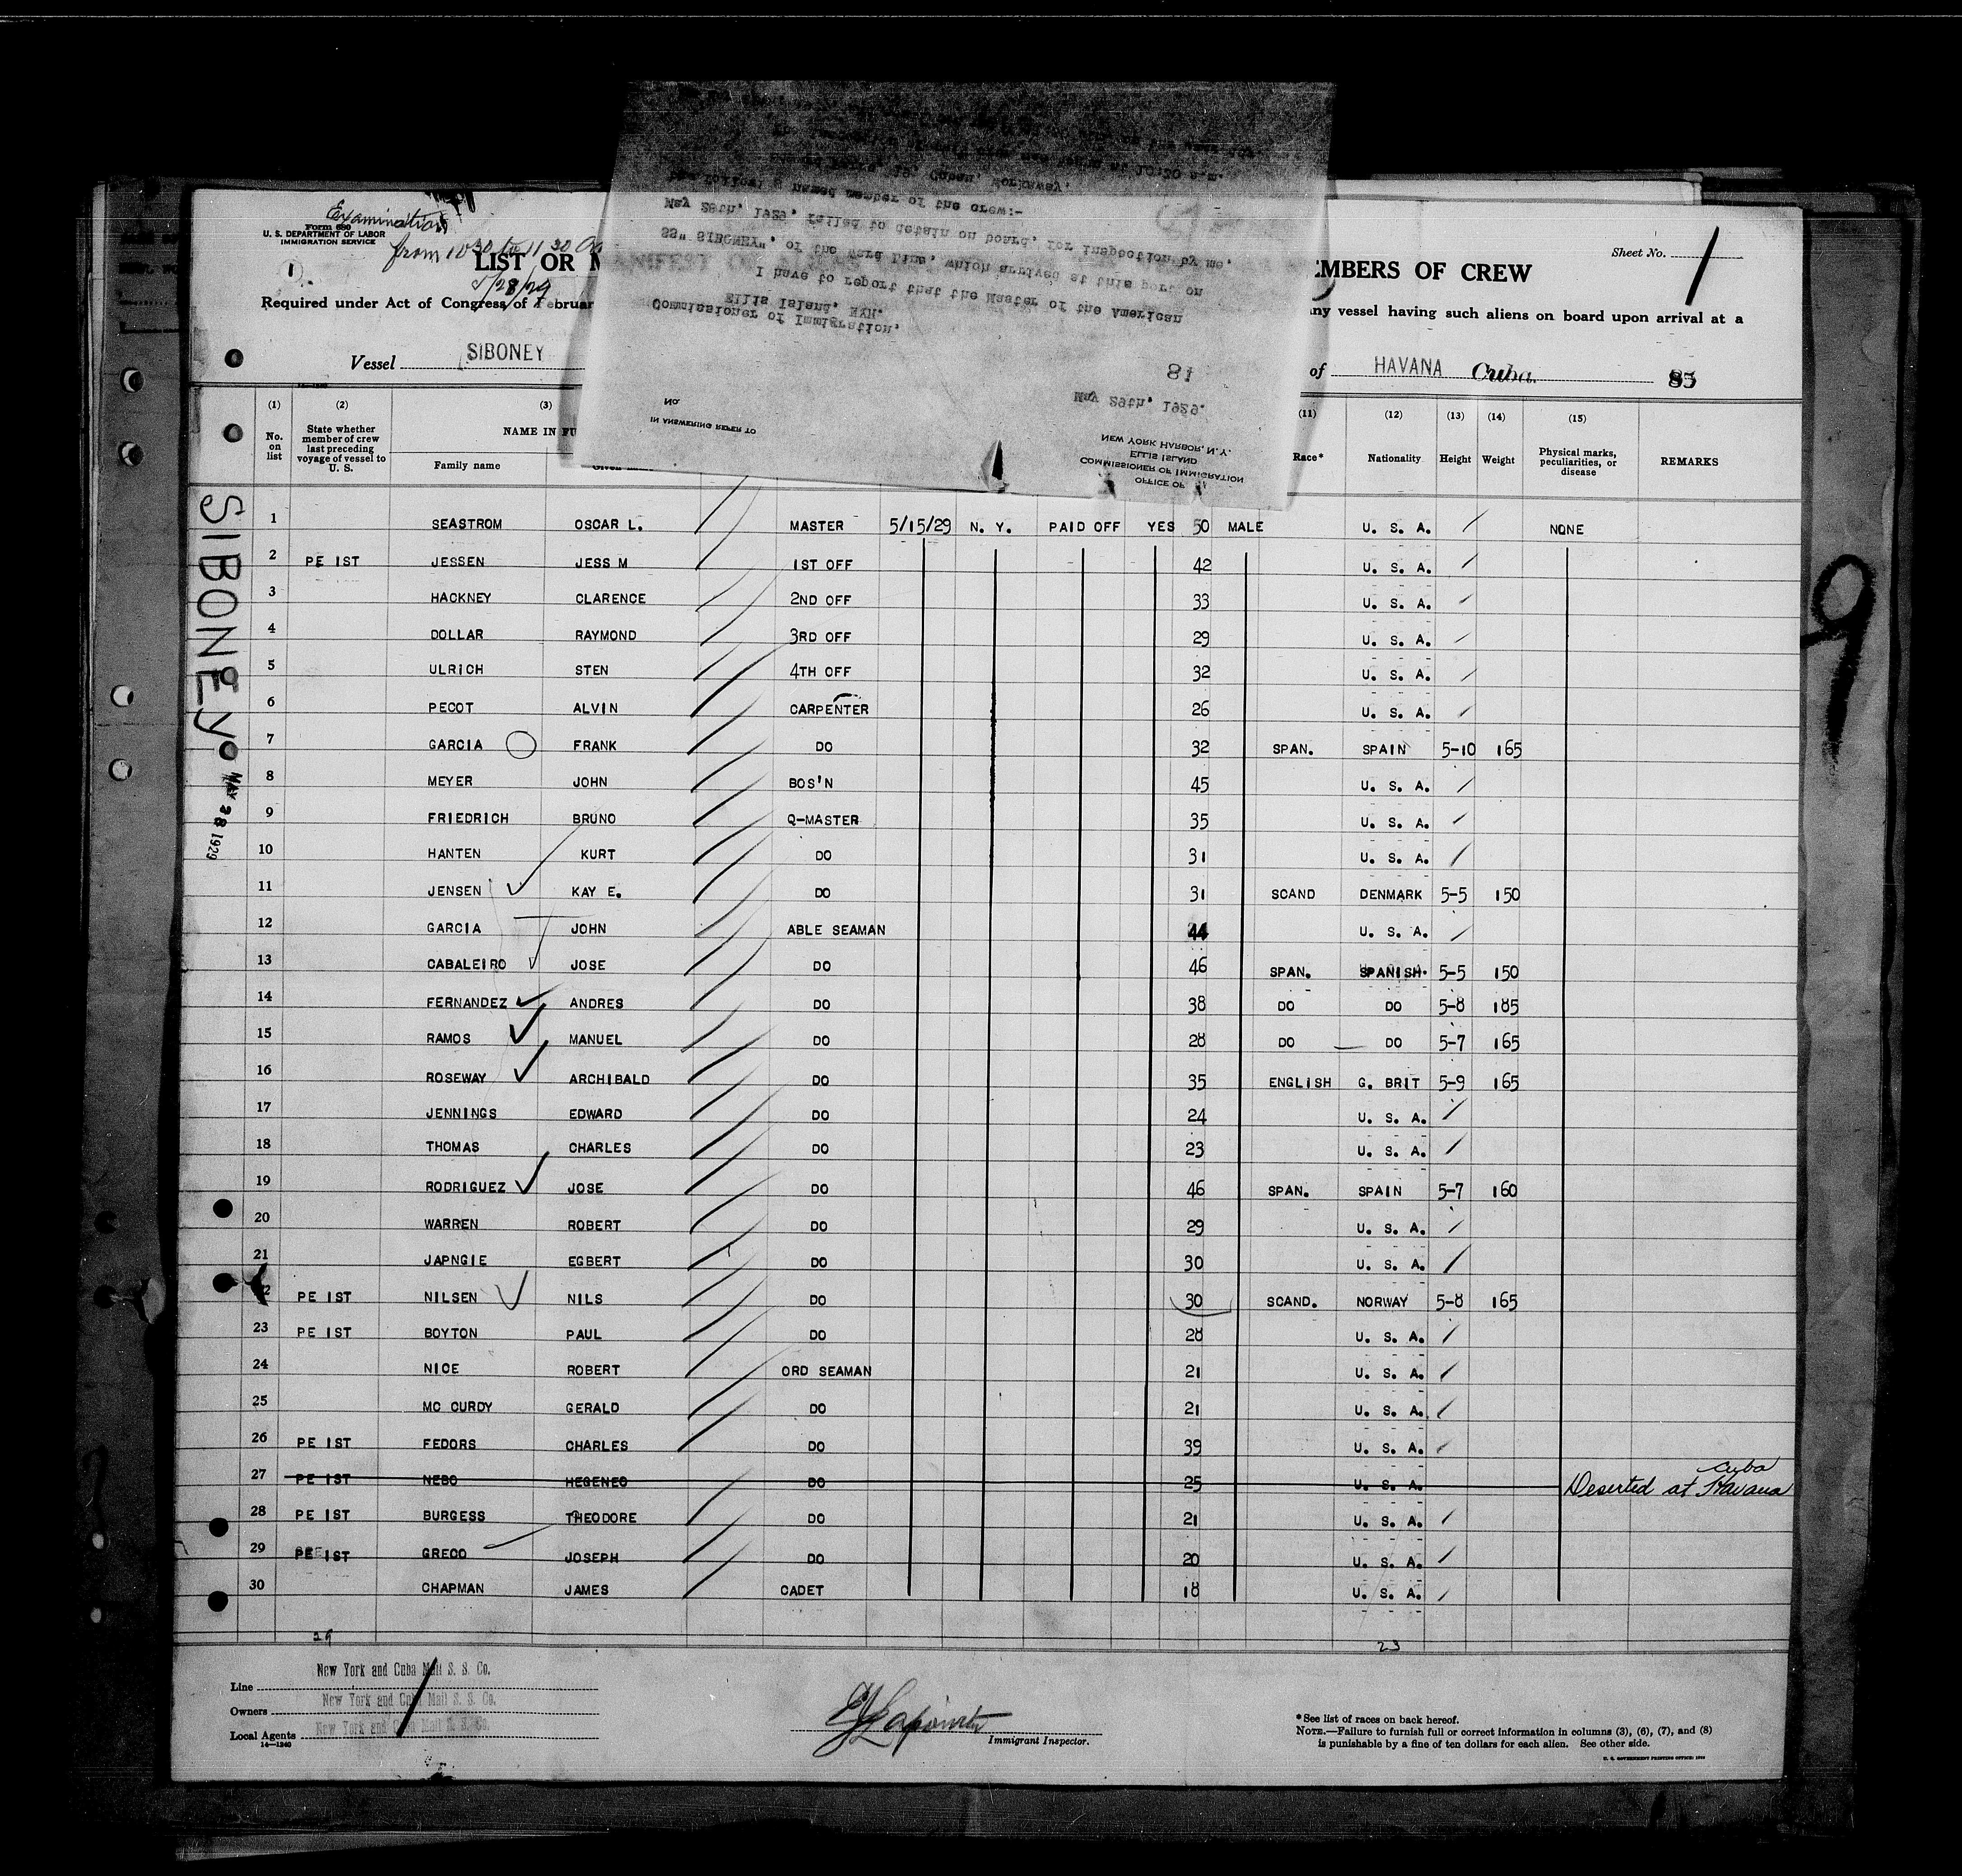 Examination
Form 680
U. S. DEPARTMENT OF LABOR
IMMIGRATION SERVICE
from 10 30 to 11 30
5/28/29
1
LIST OR
MEMBERS OF CREW
Sheet No. 1
Required under Act of Congress of Februar
any vessel having such aliens on board upon arrival at a
Vessel SIBONEY
of HAVANA Cuba. 85
OFFICE OF
COMMISSIONER OF IMMIGRATION
ELLIS ISLAND
NEW YORK HARBOR, N.Y.
IN ANSWERING REFER TO
No.
May 29th, 1929.
81
Commissioner of Immigration,
Ellis Island, NYH.
I have to report that the Master of the American
SS" SIBONEY", of the Ward Line, which arrived at this port on
May 28th, 1929, failed to detain on board, for inspection by me,
the following named member of the crew:-
(1) (2) (3) (11) (12) (13) (14) (15)
No. on list
State whether member of crew last preceding voyage of vessel to U. S.
NAME IN FU
Family name
Race* Nationality Height Weight
Physical marks, peculiarities, or disease
REMARKS
SIBONEY
MAY 28 1929
9
1 SEASTROM OSCAR L. MASTER 5/15/29 N. Y. PAID OFF YES 50 MALE U. S. A. NONE
2 PE IST JESSEN JESS M 1ST OFF 42 U. S. A.
3 HACKNEY CLARENCE 2ND OFF 33 U. S. A.
4 DOLLAR RAYMOND 3RD OFF 29 U. S. A.
5 ULRICH STEN 4TH OFF 32 U. S. A.
6 PECOT ALVIN CARPENTER 26 U. S. A.
7 GARCIA FRANK DO 32 SPAN. SPAIN 5-10 165
8 MEYER JOHN BOS'N 45 U. S. A.
9 FRIEDRICH BRUNO Q-MASTER 35 U. S. A.
10 HANTEN KURT DO 31 U. S. A.
11 JENSEN KAY E. DO 31 SCAND DENMARK 5-5 150
12 GARCIA JOHN ABLE SEAMAN 44 U. S. A.
13 CABALEIRO JOSE DO 46 SPAN. SPANISH 5-5 150
14 FERNANDEZ ANDRES DO 38 DO DO 5-8 185
15 RAMOS MANUEL DO 28 DO DO 5-7 165
16 ROSEWAY ARCHIBALD DO 35 ENGLISH G. BRIT 5-9 165
17 JENNINGS EDWARD DO 24 U. S. A.
18 THOMAS CHARLES DO 23 U. S. A.
19 RODRIGUEZ JOSE DO 46 SPAN. SPAIN 5-7 160
20 WARREN ROBERT DO 29 U. S. A.
21 JAPNGIE EGBERT DO 30 U. S. A.
22 PE IST NILSEN NILS DO 30 SCAND. NORWAY 5-8 165
23 PE IST BOYTON PAUL DO 28 U. S. A.
24 NICE ROBERT ORD SEAMAN 21 U. S. A.
25 MC CURDY GERALD DO 21 U. S. A.
26 PE IST FEDORS CHARLES DO 39 U. S. A.
27 PE IST NEBO HEGENEO DO 25 U. S. A. Deserted at Havana Cuba
28 PE IST BURGESS THEODORE DO 21 U. S. A.
29 PE IST GRECO JOSEPH DO 20 U. S. A.
30 CHAPMAN JAMES CADET 18 U. S. A.
29 23
Line New York and Cuba Mail S. S. Co.
Owners New York and Cuba Mail S. S. Co.
Local Agents New York and Cuba Mail S. S. Co.
14—1240
Immigrant Inspector.
*See list of races on back hereof.
NOTE.—Failure to furnish full or correct information in columns (3), (6), (7), and (8)
is punishable by a fine of ten dollars for each alien. See other side.